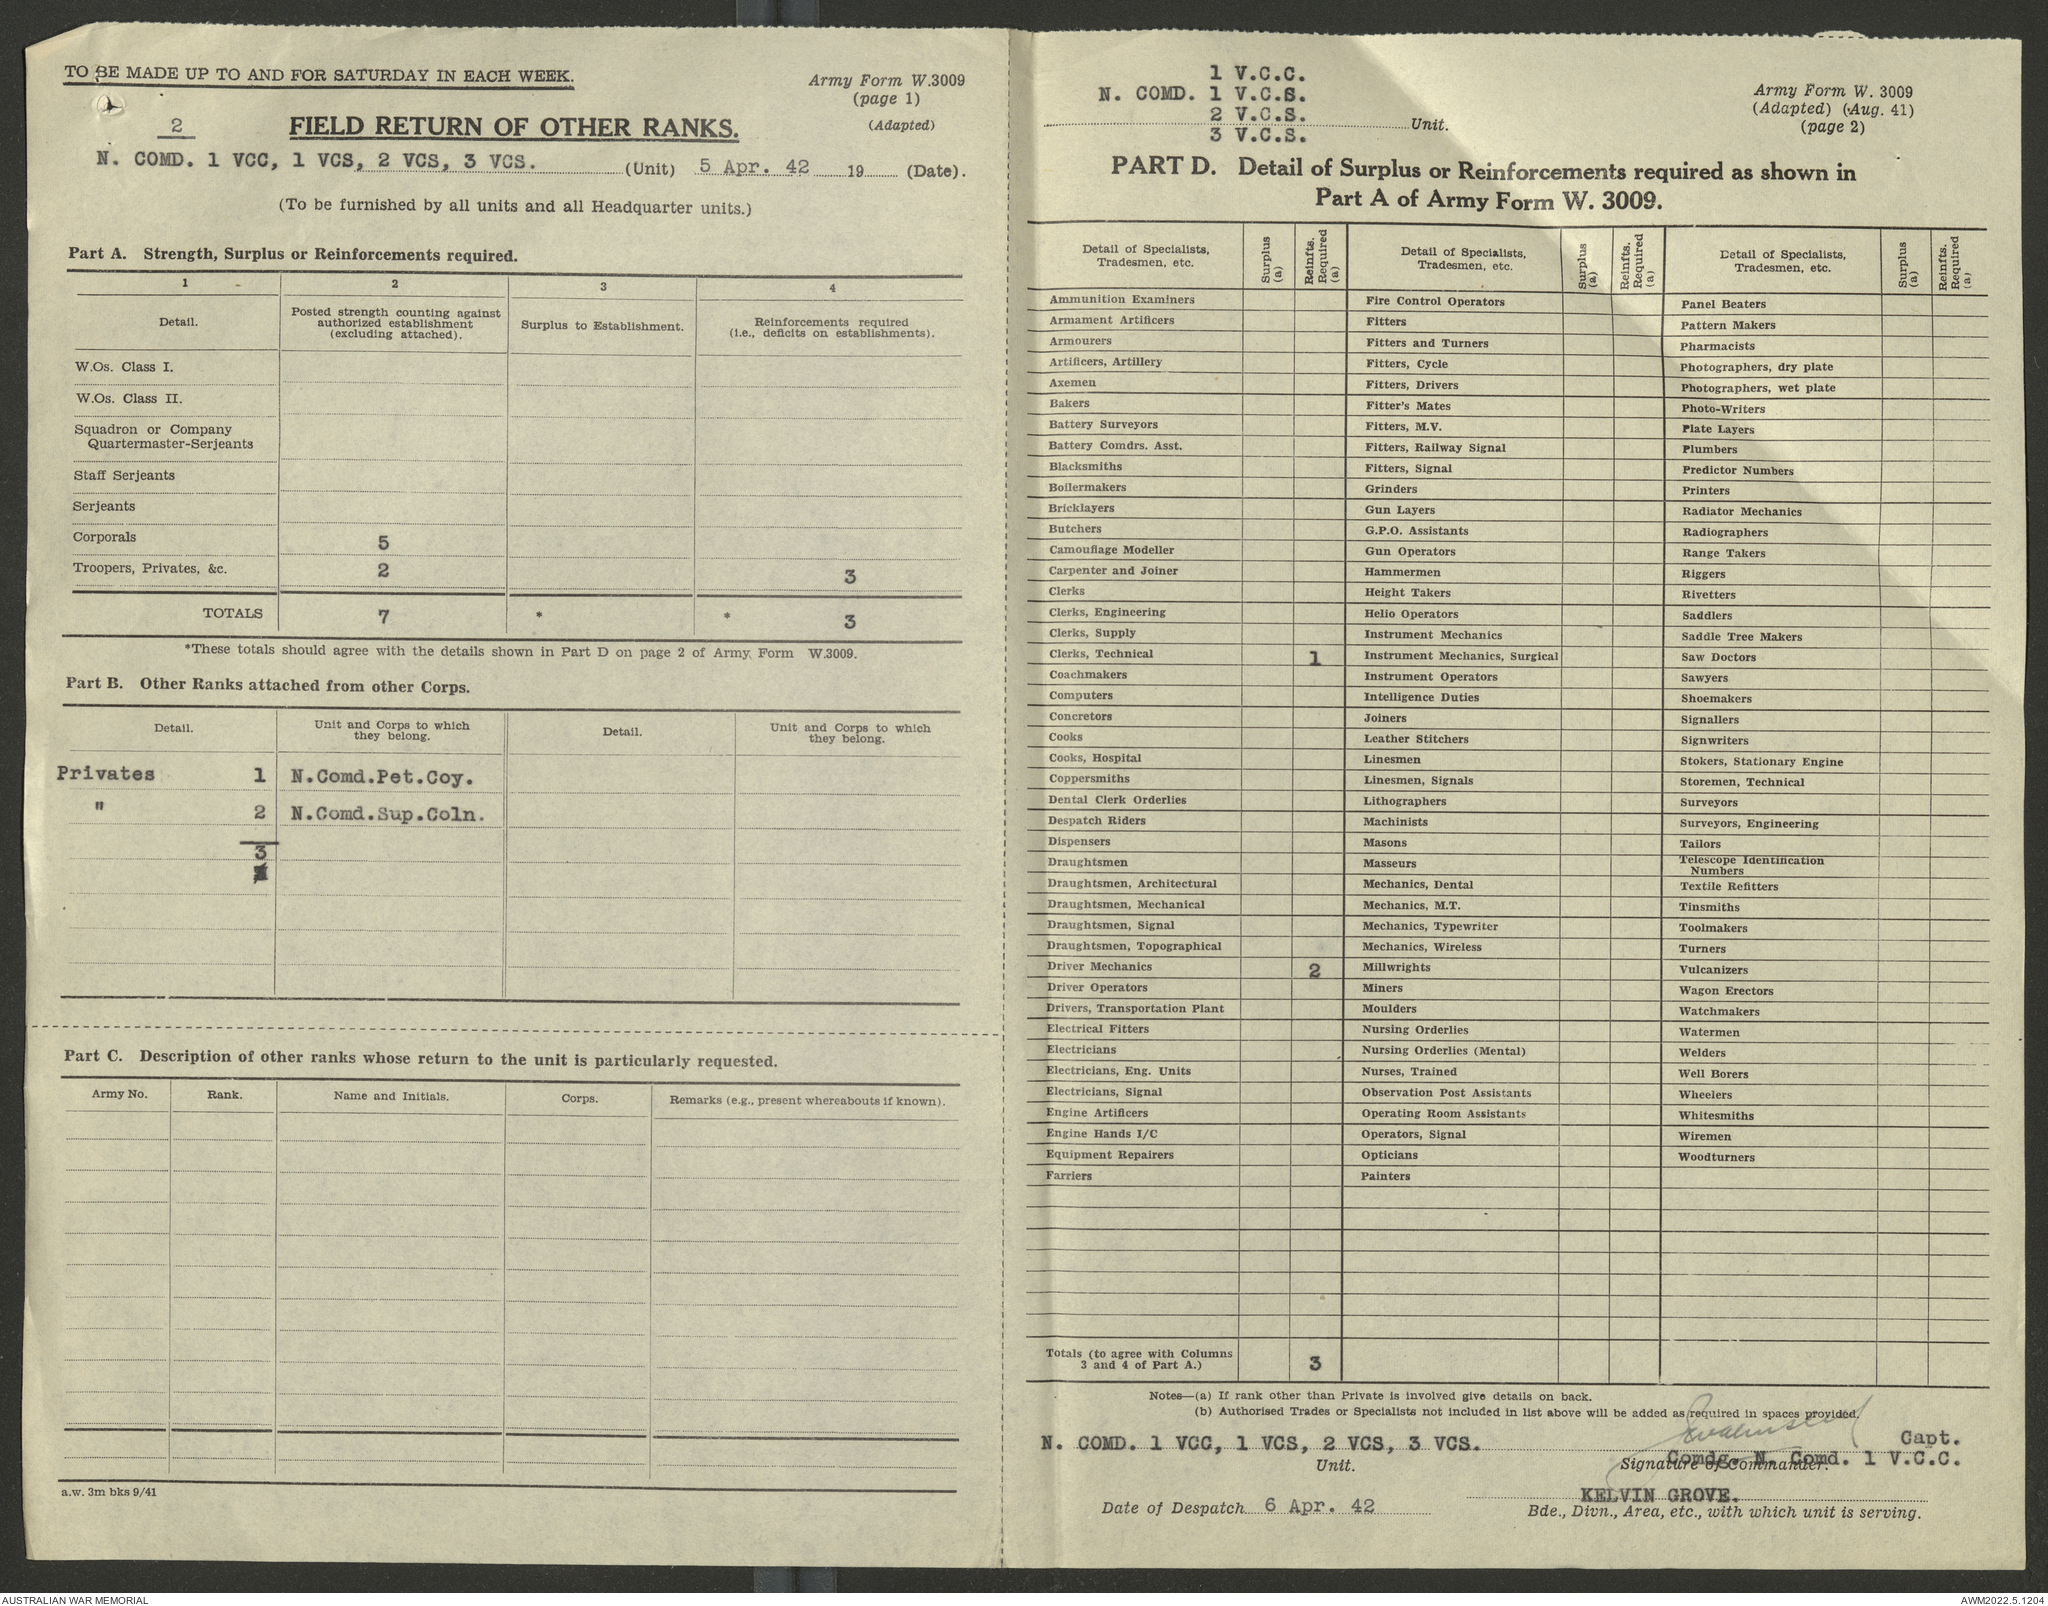 TO BE MADE UP TO AND FOR SATURDAY IN EACH WEEK.
Army Form W.3009
(page 1)
(Adapted)
2
FIELD RETURN OF OTHER RANKS.
N. COMD. 1 VCC, 1 VCS, 2 VCS, 3 VCS. (Unit) 5 Apr. 42 19 (Date).
(To be furnished by all units and all Headquarter units.)
Part A. Strength, Surplus or Reinforcements required.
1 2 3 4
Detail.
Posted strength counting against
authorized establishment
(excluding attached).
Surplus to Establishment.
Reinforcements required
(i.e., deficits on establishments).
W.Os. Class I.
W.Os. Class II.
Squadron or Company
Quartermaster-Serjeants
Staff Serjeants
Serjeants
Corporals 5
Troopers, Privates, &c. 2 3
TOTALS 7 * * 3
*These totals should agree with the details shown in Part D on page 2 of Army Form W.3009.
Part B. Other Ranks attached from other Corps.
Detail.
Unit and Corps to which
they belong.
Detail.
Unit and Corps to which
they belong.
Privates 1 N.Comd.Pet.Coy.
" 2 N.Comd.Sup.Coln.
3
Part C. Description of other ranks whose return to the unit is particularly requested.
Army No. Rank. Name and Initials. Corps. Remarks (e.g., present whereabouts if known).
a.w. 3m bks 9/41
1 V.C.C.
N. COMD. 1 V.C.S.
2 V.C.S.
Unit.
3 V.C.S.
Army Form W. 3009
(Adapted) (Aug. 41)
(page 2)
PART D. Detail of Surplus or Reinforcements required as shown in
Part A of Army Form W. 3009.
Detail of Specialists,
Tradesmen, etc.
Surplus
(a)
Reinfts.
Required
(a)
Detail of Specialists,
Tradesmen, etc.
Surplus
(a)
Reinfts.
Required
(a)
Detail of Specialists,
Tradesmen, etc.
Surplus
(a)
Reinfts.
Required
(a)
Ammunition Examiners
Armament Artificers
Armourers
Artificers, Artillery
Axemen
Bakers
Battery Surveyors
Battery Comdrs. Asst.
Blacksmiths
Boilermakers
Bricklayers
Butchers
Camouflage Modeller
Carpenter and Joiner
Clerks
Clerks, Engineering
Clerks, Supply
Clerks, Technical 1
Coachmakers
Computers
Concretors
Cooks
Cooks, Hospital
Coppersmiths
Dental Clerk Orderlies
Despatch Riders
Dispensers
Draughtsmen
Draughtsmen, Architectural
Draughtsmen, Mechanical
Draughtsmen, Signal
Draughtsmen, Topographical
Driver Mechanics 2
Driver Operators
Drivers, Transportation Plant
Electrical Fitters
Electricians
Electricians, Eng. Units
Electricians, Signal
Engine Artificers
Engine Hands I/C
Equipment Repairers
Farriers
Fire Control Operators
Fitters
Fitters and Turners
Fitters, Cycle
Fitters, Drivers
Fitter's Mates
Fitters, M.V.
Fitters, Railway Signal
Fitters, Signal
Grinders
Gun Layers
G.P.O. Assistants
Gun Operators
Hammermen
Height Takers
Helio Operators
Instrument Mechanics
Instrument Mechanics, Surgical
Instrument Operators
Intelligence Duties
Joiners
Leather Stitchers
Linesmen
Linesmen, Signals
Lithographers
Machinists
Masons
Masseurs
Mechanics, Dental
Mechanics, M.T.
Mechanics, Typewriter
Mechanics, Wireless
Millwrights
Miners
Moulders
Nursing Orderlies
Nursing Orderlies (Mental)
Nurses, Trained
Observation Post Assistants
Operating Room Assistants
Operators, Signal
Opticians
Painters
Panel Beaters
Pattern Makers
Pharmacists
Photographers, dry plate
Photographers, wet plate
Photo-Writers
Plate Layers
Plumbers
Predictor Numbers
Printers
Radiator Mechanics
Radiographers
Range Takers
Riggers
Rivetters
Saddlers
Saddle Tree Makers
Saw Doctors
Sawyers
Shoemakers
Signallers
Signwriters
Stokers, Stationary Engine
Storemen, Technical
Surveyors
Surveyors, Engineering
Tailors
Telescope Identification
Numbers
Textile Refitters
Tinsmiths
Toolmakers
Turners
Vulcanizers
Wagon Erectors
Watchmakers
Watermen
Welders
Well Borers
Wheelers
Whitesmiths
Wiremen
Woodturners
Totals (to agree with Columns
3 and 4 of Part A.) 3
Notes—(a) If rank other than Private is involved give details on back.
(b) Authorised Trades or Specialists not included in list above will be added as required in spaces provided.
N. COMD. 1 VCC, 1 VCS, 2 VCS, 3 VCS. Capt.
Comdg. N. Comd. 1 V.C.C.
Unit. Signature of Commander.
KELVIN GROVE.
Date of Despatch 6 Apr. 42
Bde., Divn., Area, etc., with which unit is serving.
AUSTRALIAN WAR MEMORIAL
AWM2022.5.1204